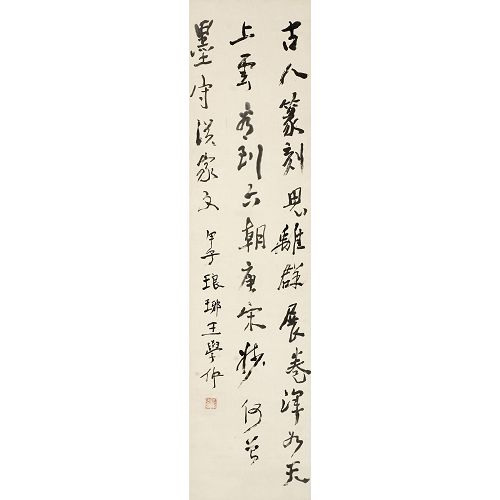 古人篆刻思離群展卷渾如天
上雲看到六朝唐宋妙何曾
墨守漢家文
子琅琊王學仲